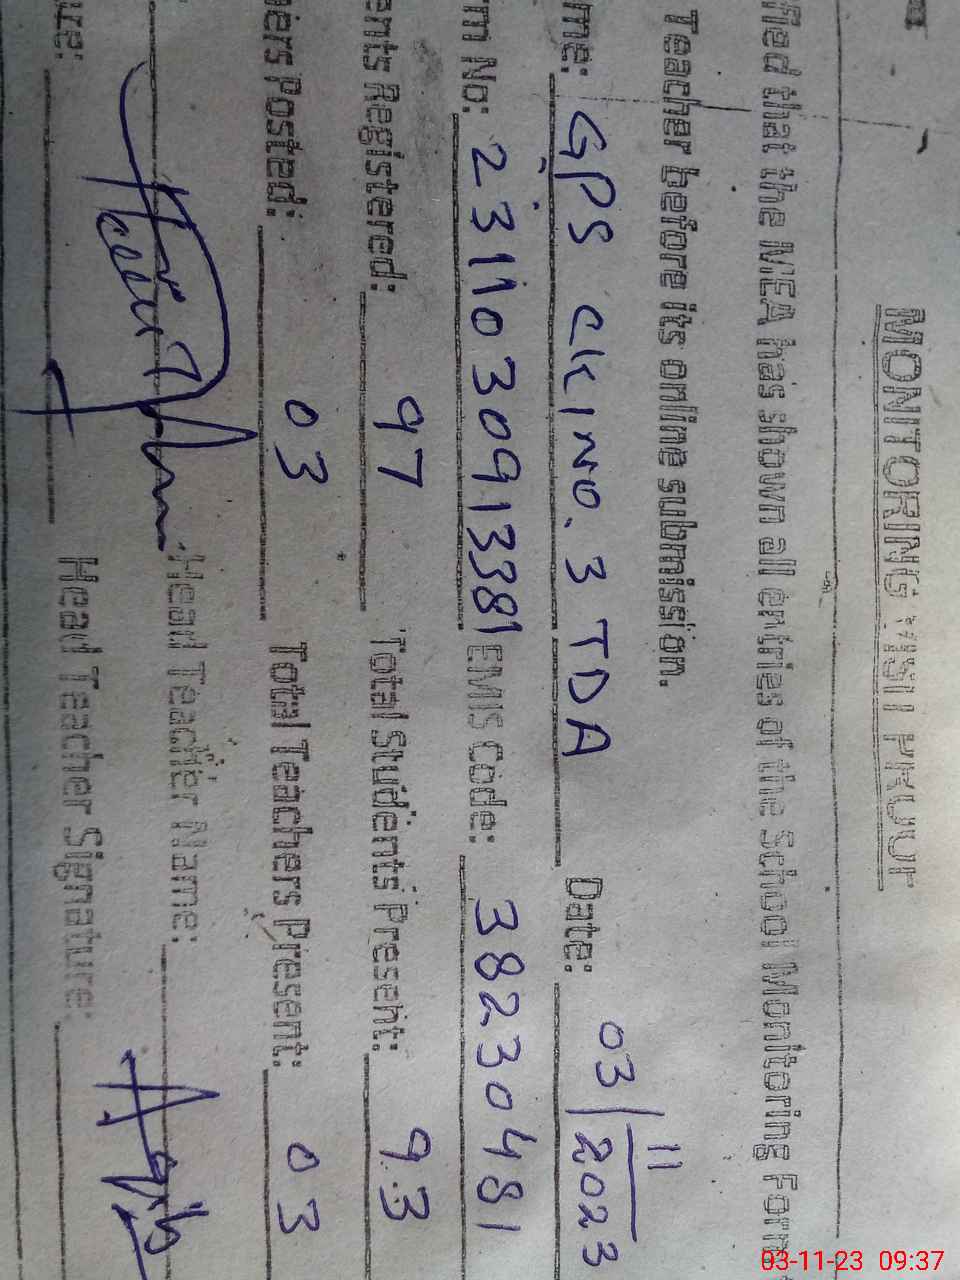 MONITORING VISIT PROOF
fied that the MEA has shown all entries of the School Monitoring Form
Teacher before its online submission.
me: GPS CK NO. 3 TDA Date: 03/11/2023
m No: 2311030913381 EMIS Code: 38230481
ents Registered: 97 Total Students Present: 93
ers Posted: 03 Total Teachers Present: 03
Head Teacher Name:
ure: Head Teacher Signature:
03-11-23 09:37